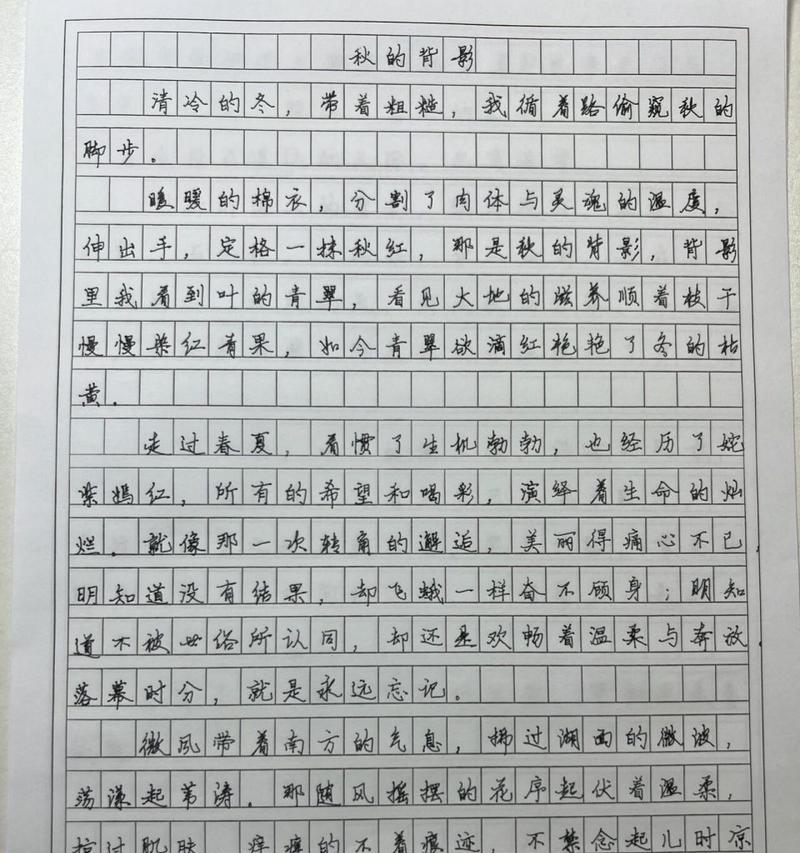 秋的背影
清冷的冬，带着粗糙，我循着路偷窥秋的
脚步。
暖暖的棉衣，分割了肉体与灵魂的温度，
伸出手，定格一抹秋红，那是秋的背影，背影
里我看到叶的青翠，看见大地的滋养顺着枝干
慢慢染红青果，如今青翠欲滴红艳艳了冬的枯
黄。
走过春夏，看惯了生机勃勃，也经历了姹
紫嫣红，所有的希望和喝彩，演绎着生命的灿
烂。就像那一次转角的邂逅，美丽得痛心不已，
明知道没有结果，却飞蛾一样奋不顾身；明知
道不被世俗所认同，却还是欢畅着温柔与奔放。
落幕时分，就是永远忘记。
微风带着南方的气息，拂过湖面的微波，
荡漾起苇涛。那随风摇摆的花序起伏着温柔，
掠过肌肤，痒痒的不着痕迹，不禁念起儿时凉